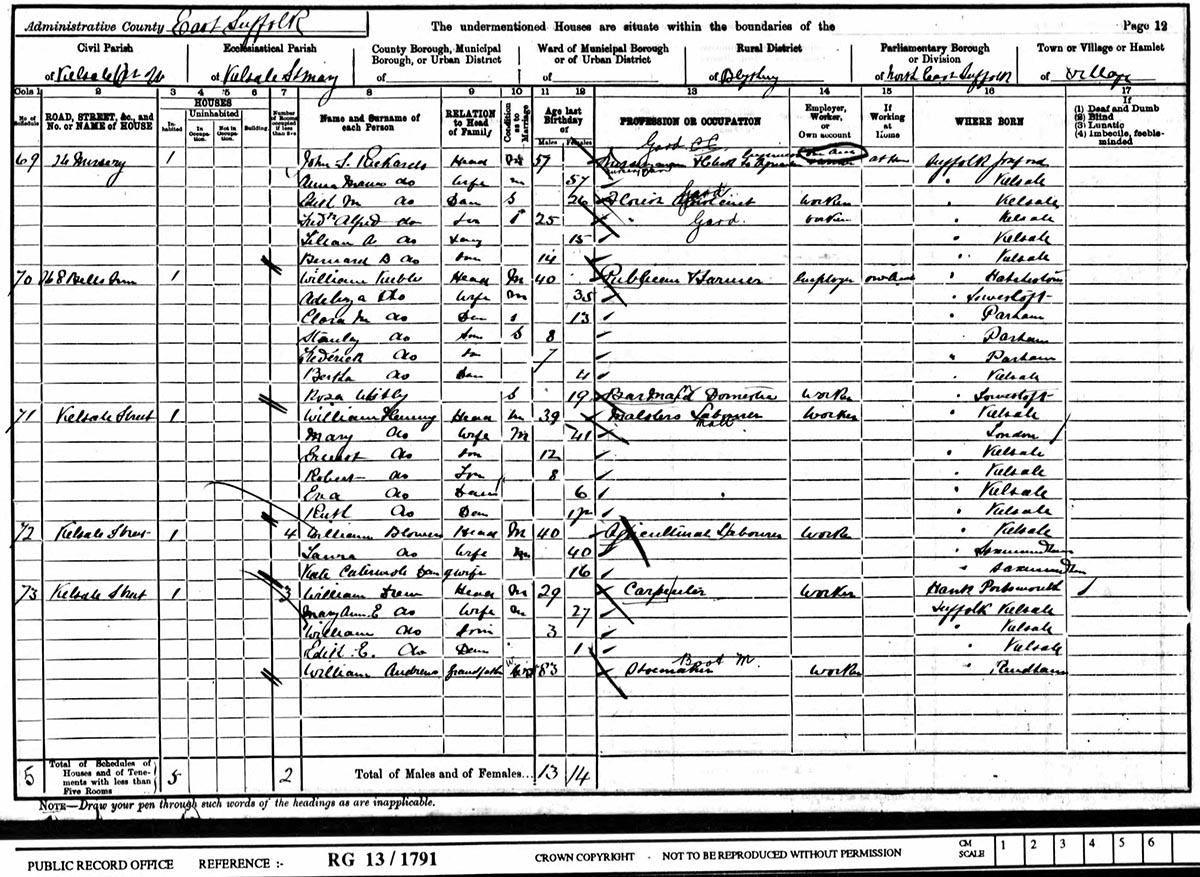 Administrative County East Suffolk The undermentioned Houses are situate within the boundaries of the Page 12
Civil Parish Ecclesiastical Parish County Borough, Municipal Borough, or Urban District Ward of Municipal Borough or of Urban District Rural District Parliamentary Borough or Division Town or Village or Hamlet
of Kelsale of Kelsale St Mary of of of Blything of North East Suffolk of Village
Cols 1 2 3 4 5 6 7 8 9 10 11 12 13 14 15 16 17
No. of Schedule ROAD, STREET, &c., and No. or NAME of HOUSE HOUSES Inhabited Uninhabited In Occupation Not in Occupation Building Number of Rooms occupied if less than five Name and Surname of each Person RELATION to Head of Family Condition as to Marriage Age last Birthday of Males Females PROFESSION OR OCCUPATION Employer, Worker, or Own account If Working at Home WHERE BORN If (1) Deaf and Dumb (2) Blind (3) Lunatic (4) Imbecile, feeble-minded
69 The Nursery 1 John S. Richards Head M 57 at Home Suffolk
Anna Maria do Wife M 57 " Kelsale
Edith M do Daur S 26 Florist Worker " Kelsale
Fredk Alfred do Son S 25 " Gard. Worker " Kelsale
Lilian A do Daug 15 " Kelsale
Bernard B do Son 14 " Kelsale
70 The 8 Bells Inn 1 William Keeble Head M 40 Publican & Farmer Employer " Hacheston
Adeliza do Wife M 35 " Lowestoft
Clara M do Daur S 13 " Parham
Stanley do Son S 8 Parham
Frederick do Son 7 " Parham
Bertha do Daur 4 " Kelsale
Rosa S 19 Barmaid Domestic Worker " Lowestoft
71 Kelsale Street 1 William Head M 39 Malsters Labourer Malt Worker " Kelsale
Mary do Wife M 41 London
Ernest do Son 12 " Kelsale
Robert do Son 8 " Kelsale
Eva do Daur 6 " Kelsale
Ruth do Daur 1 " Kelsale
72 Kelsale Street 1 4 William Blowers Head M 40 Agricultural Labourer Worker " Kelsale
Laura do Wife M 40 " Saxmundham
Kate Catermole Dau of wife 16 " Saxmundham
73 Kelsale Street 1 3 William Drew Head M 29 Carpenter Worker Hants Portsmouth
Mary Ann E do Wife M 27 Suffolk Kelsale
William do Son 3 " Kelsale
Edith E. do Daur 1 " Kelsale
William Andrews Grandfather 83 Shoemaker Boot M. Worker " Rendham
5 Total of Schedules of Houses and of Tenements with less than Five Rooms 5 2 Total of Males and of Females... 13 14
NOTE—Draw your pen through such words of the headings as are inapplicable.
PUBLIC RECORD OFFICE REFERENCE :- RG 13/1791 CROWN COPYRIGHT - NOT TO BE REPRODUCED WITHOUT PERMISSION CM SCALE 1 2 3 4 5 6